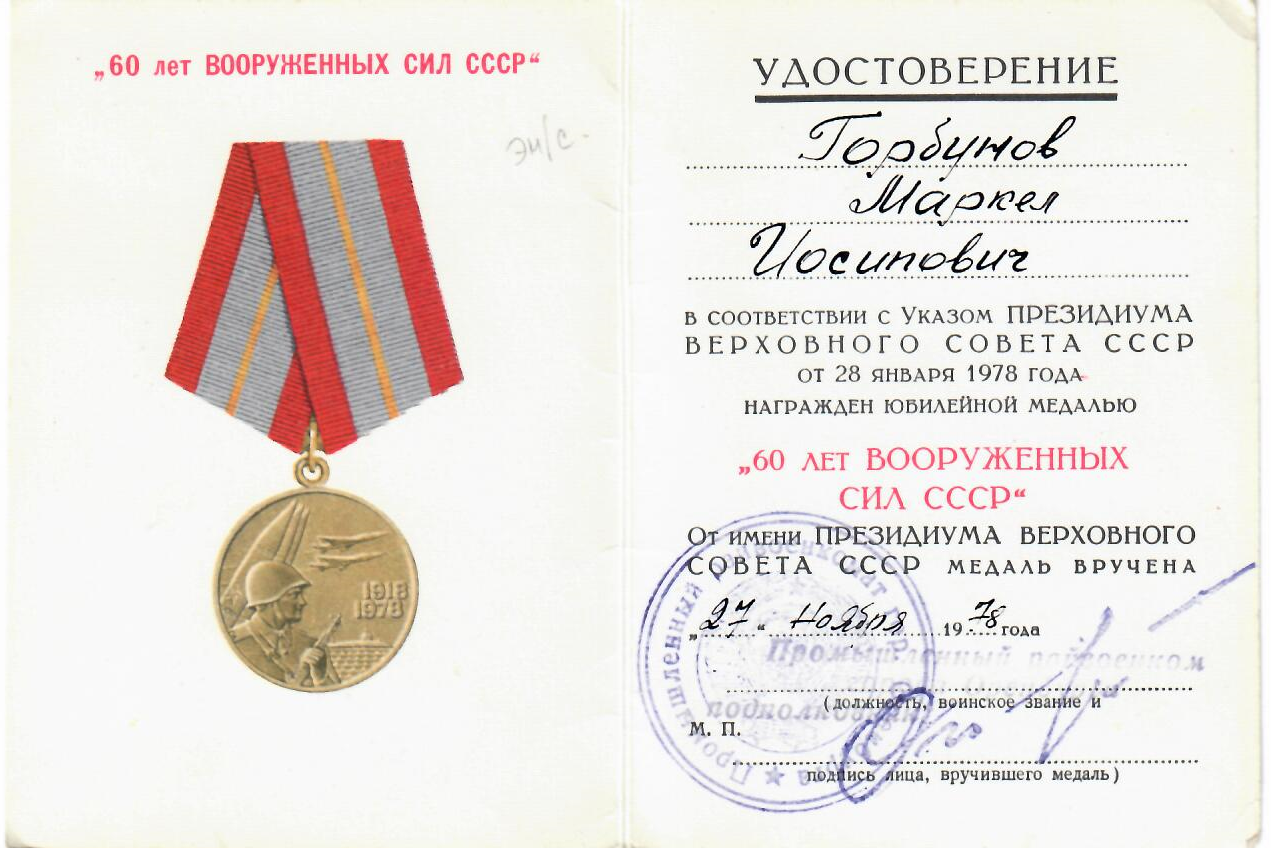 „60 лет ВООРУЖЕННЫХ СИЛ СССР“
1918
1978
УДОСТОВЕРЕНИЕ
Горбунов
Маркел
Иосипович
в соответствии с Указом ПРЕЗИДИУМА
ВЕРХОВНОГО СОВЕТА СССР
от 28 января 1978 года
награжден юбилейной медалью
„60 лет ВООРУЖЕННЫХ
СИЛ СССР“
От имени ПРЕЗИДИУМА ВЕРХОВНОГО
СОВЕТА СССР медаль вручена
„27“ ноября 1978 года
Промышленный райвоенком
подполковник
(должность, воинское звание и
М. П.
подпись лица, вручившего медаль)
Промышленный райвоенкомат